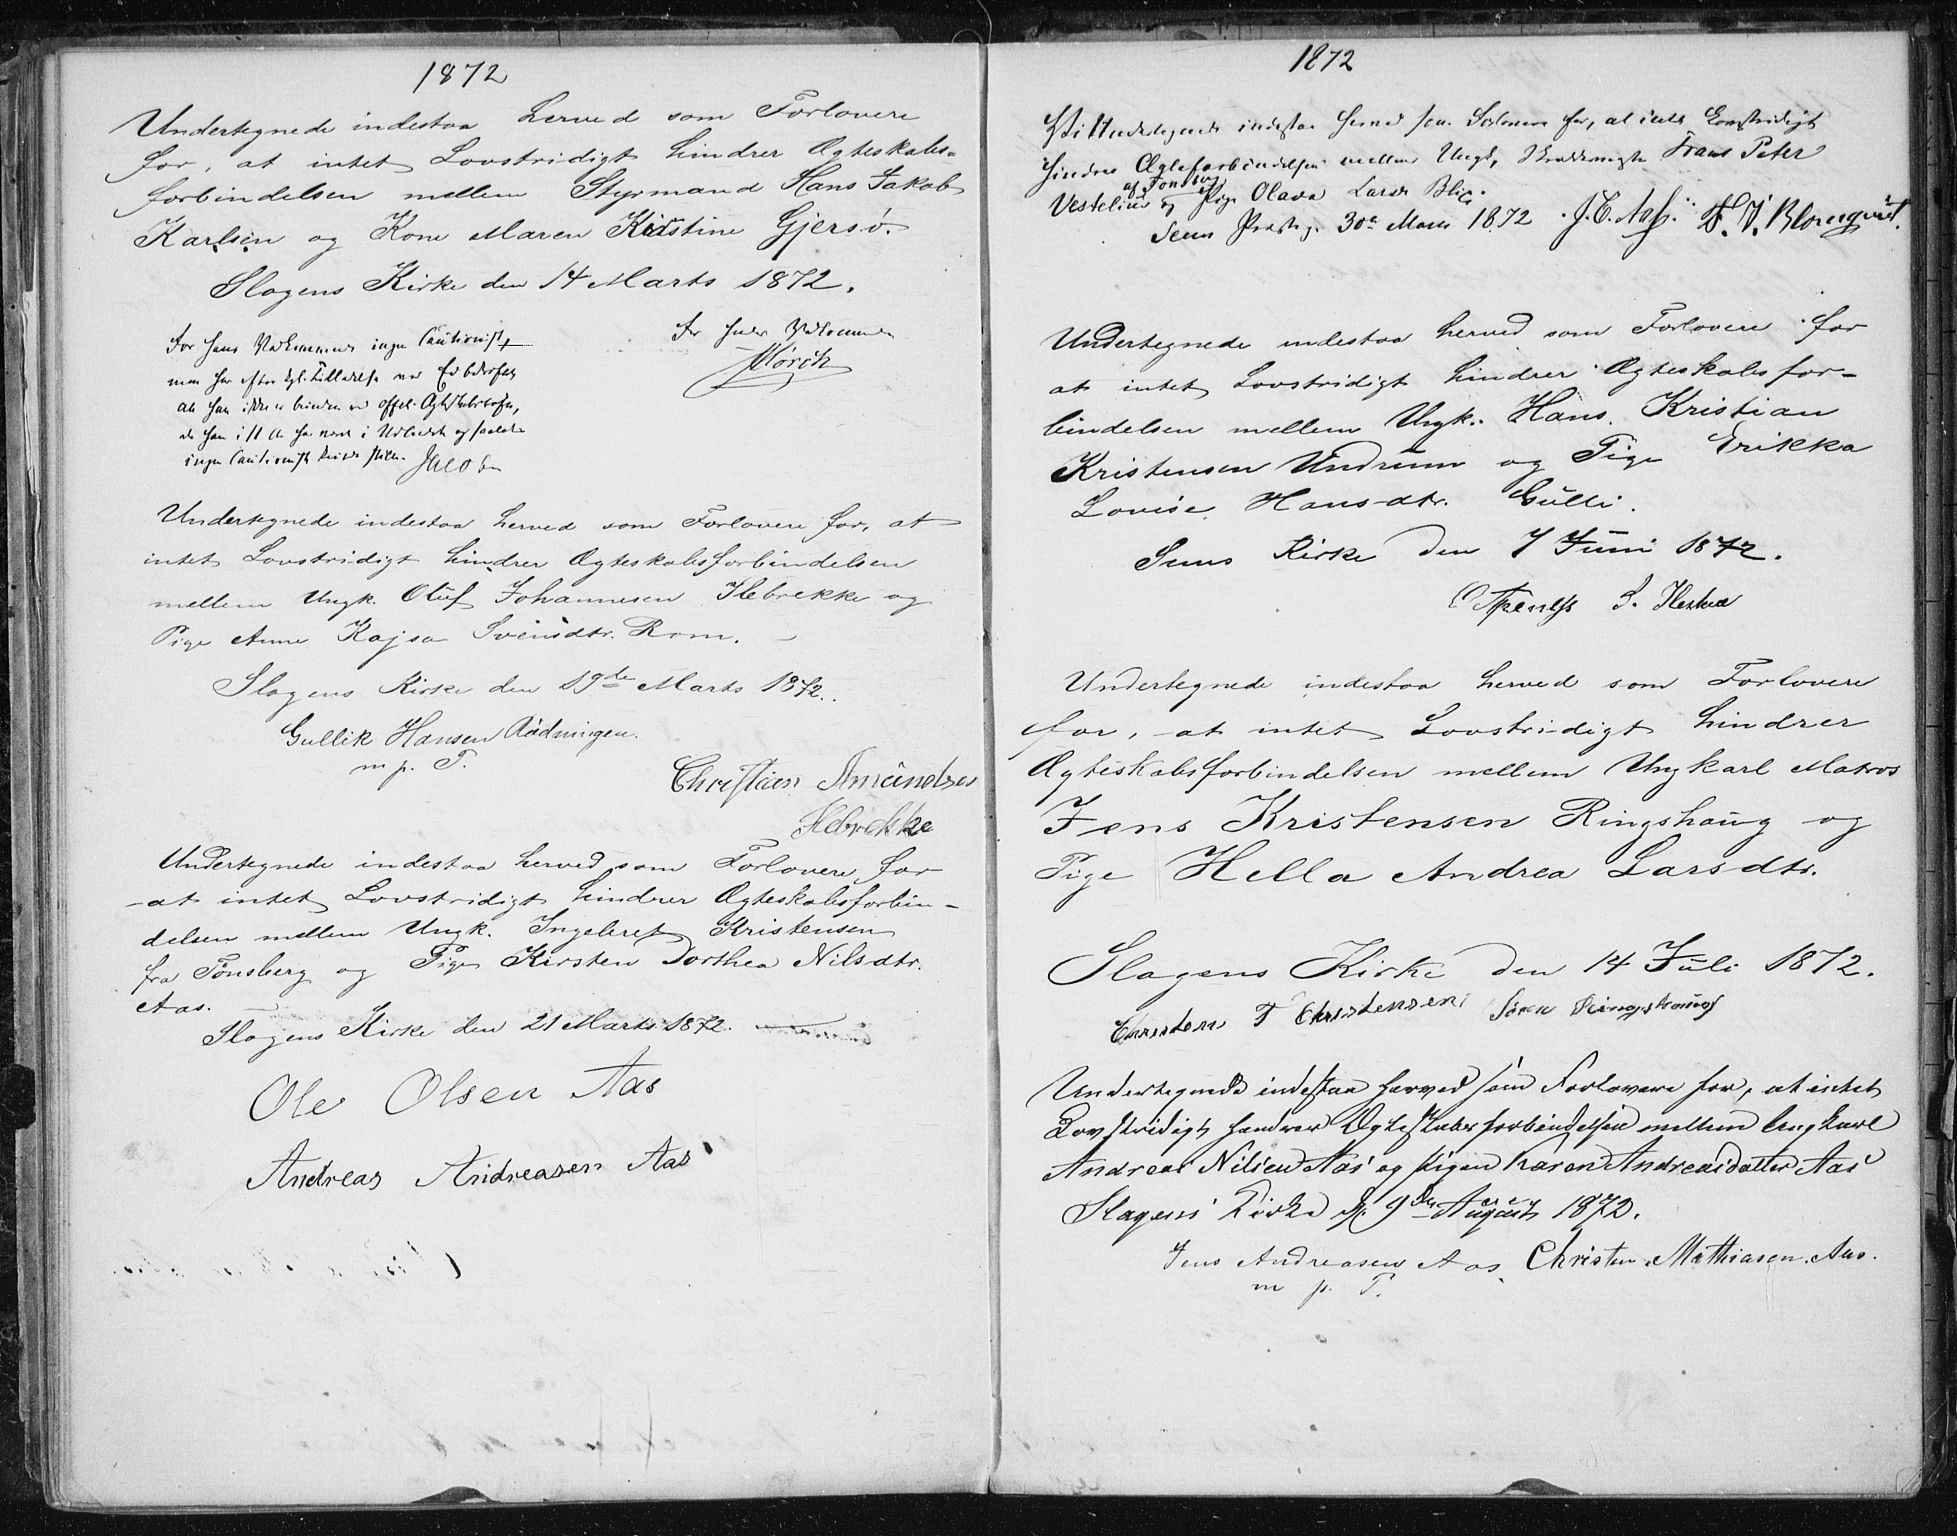 1872
Undertegnede indestaa herved som Forlovere
for, at intet Lovstridigt hindrer Ægteskabs-
forbindelsen mellem Styrmand Hans Jakob
Karlsen og Kone Maren Kristine Gjersø.
Slagens Kirke den 14 Marts 1872.
For hans Vedkommende ingen Cautionist,
men har efter kgl. Tilladelse
at han ikke er bunden ved
da han i 11 Aar har været i Udlandet og
ingen Cautionist kunde stille. Jacobsen
For hendes Vedkommende
Mørch
Undertegnede indestaa herved som Forlovere for, at
intet Lovstridigt hindrer Ægteskabsforbindelsen
mellem Ungk. Oluf Johannesen Ilebrekke og
Pige Anne Kajsa Svendsdtr. Rom. –
Slagens Kirke den 19de Marts 1872.
Gullik Hansen Rødningen.
m. p. P.
Christian Amundsen
Ilebrekke
Undertegnede indestaa herved som Forlovere for
at intet Lovstridigt hindrer Ægteskabsforbin-
delsen mellem Ungk. Ingebret Kristensen
fra Tønsberg og Pige Kirsten Dorthea Nilsdtr.
Aas. –
Slagens Kirke den 21 Marts 1872.
Ole Olsen Aas
Andreas Andreasen Aas
1872
Vi Undertegnede indestaa herved som Forlovere for, at intet Lovstridigt
hindrer Ægteforbindelsen mellem Ungk, Frans Peter
Vestelius af Tønsberg og Pige Olava Larsd.
Sems Præstg. 30te Marts 1872 J. C. Aass. F. V. Blomqvist.
Undertegnede indestaa herved som Forlovere for
at intet Lovstridigt hindrer Ægteskabsfor-
bindelsen mellem Ungk. Hans Kristian
Kristensen Undrum og Pige Erikka
Lovise Hansdtr. Gulli.
Sems Kirke den 7 Juni 1872.
S.
Undertegnede indestaa herved som Forlovere
for, at intet Lovstridigt hindrer
Ægteskabsforbindelsen mellem Ungkarl Matros
Jens Kristensen Ringshaug og
Pige Hella Andrea Larsdtr.
Slagens Kirke den 14 Juli 1872.
Christen T Christensen Søren Ringshaug
Undertegnede indestaa herved som Forlovere for, at intet
Lovstridigt hindrer Ægteskabsforbindelsen mellem Ungkarl
Andreas Nilsen Aas og Pigen Karen Andreasdatter Aas
Slagens Kirke d. 9de August 1872.
Jens Andreasen Aas Christen Mathiasen Aas.
m. p. P.